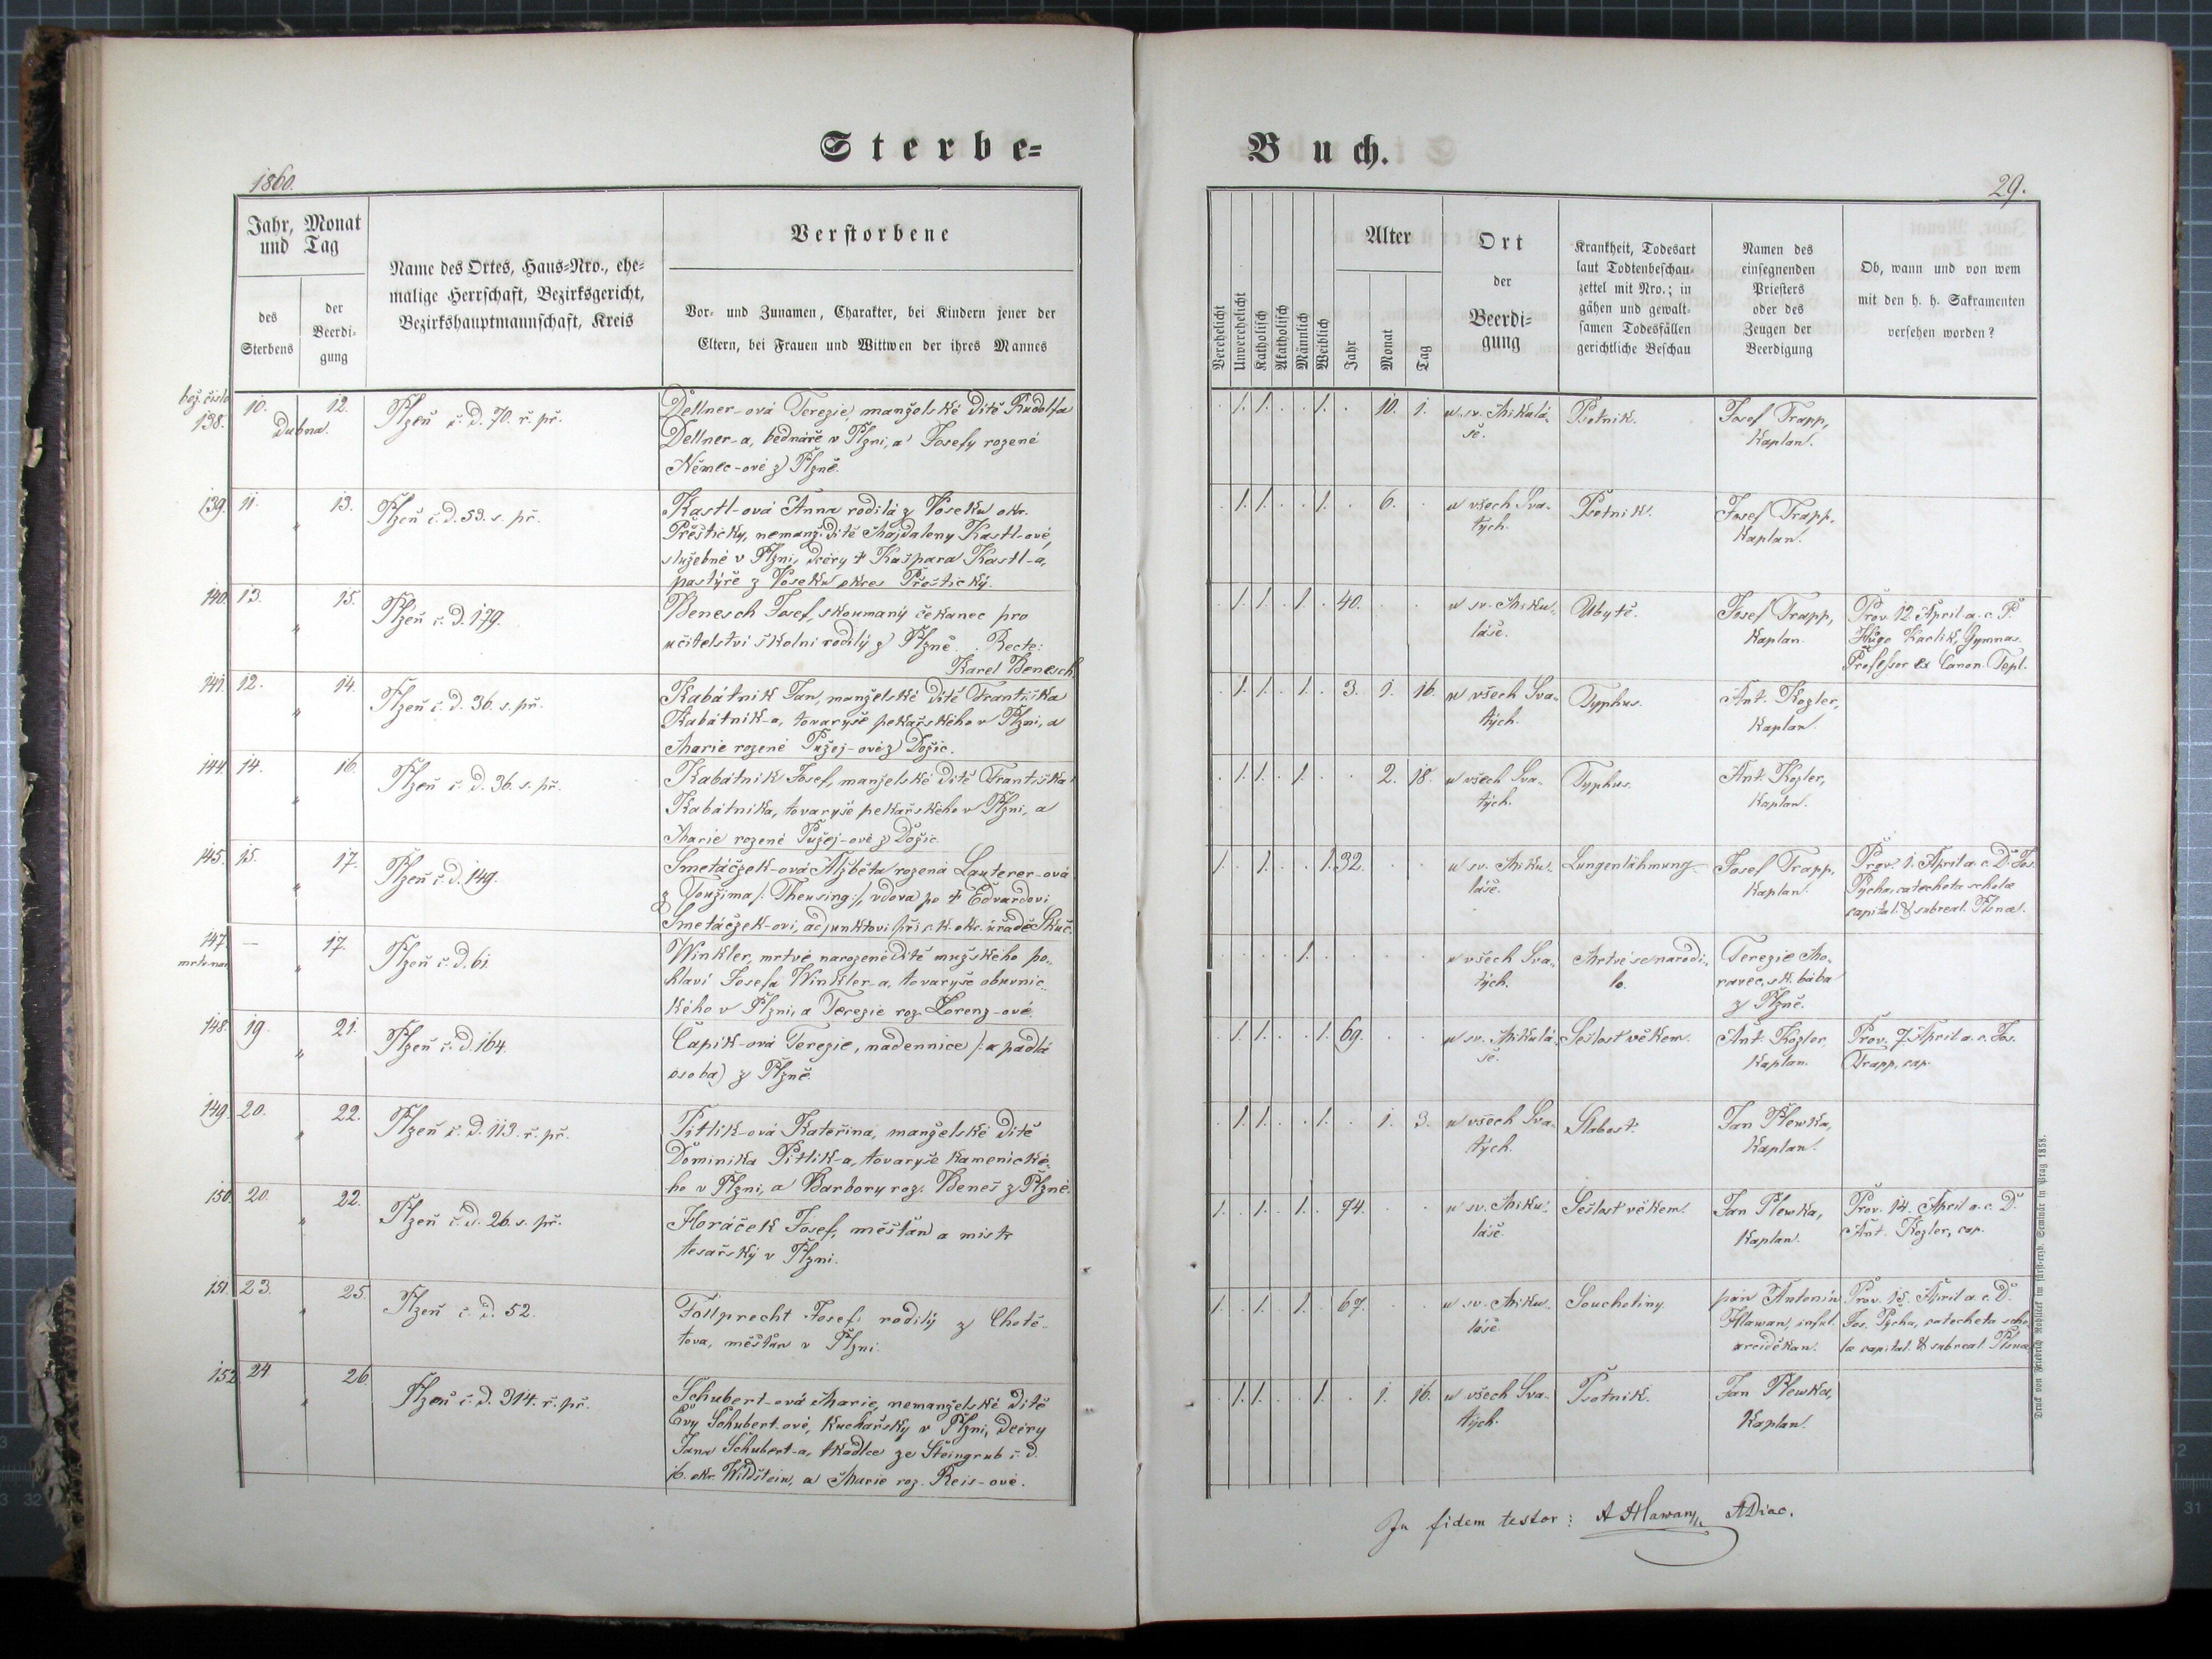 Sterbe-
Buch.
1860.
29.
Jahr, Monat
und Tag
des
Sterbens
der
Beerdi-
gung
Name des Ortes, Haus-Nro., ehe-
malige Herrschaft, Bezirksgericht,
Bezirkshauptmannschaft, Kreis
Verstorbene
Vor- und Zunamen, Charakter, bei Kindern jener der
Eltern, bei Frauen und Wittwen der ihres Mannes
Verehelicht
Unverehelicht
Katholisch
Akatholisch
Männlich
Weiblich
Alter
Jahr
Monat
Tag
Ort
der
Beerdi-
gung
Krankheit, Todesart
laut Todtenbeschau-
zettel mit Nro.; in
gähen und gewalt-
samen Todesfällen
gerichtliche Beschau
Namen des
einsegnenden
Priesters
oder des
Zeugen der
Beerdigung
Ob, wann und von wem
mit den h. h. Sakramenten
versehen worden?
běž. číslo
138. 10. 12.
Dubna.
Plzeň č. d. 70. ř. př.
Dellner-ová Terezie, manželské dítě Rudolfa
Dellner-a, bednáře v Plzni, a Josefy rozené
Němec-ové z Plzně.
. 1. 1. . . 1. . 10. 1.
u sv. Mikulá-
še.
Psotnik.
Josef Trapp,
Kaplan.
139. 11. 13.
"
Plzeň č. d. 53. s. př.
Kastl-ová Anna rodilá z Voseku okr.
Přešticky, nemanž. dítě Majdaleny Kastl-ové,
služebné v Plzni, dcéry † Kašpara Kastl-a,
pastýře z Voseku okres Přeštický.
. 1. 1. . . 1. . 6. .
u všech Sva-
tých.
Psotnik.
Josef Trapp,
Kaplan.
140. 13. 15.
"
Plzeň č. d. 179.
Benesch Josef, skoumaný čekanec pro
učitelství školní rodilý z Plzně. Recte:
Karel Benesch
. 1. 1. . 1. . 40. . .
u sv. Miku-
láše.
Ubytě.
Josef Trapp,
Kaplan.
Prov. 12. April a. c. P.
Hugo Karlik, Gymnas.
Professor et Canon. Tepl.
141. 12. 14.
"
Plzeň č. d. 36. s. př.
Kabátnik Jan, manželské dítě Františka
Kabátnik-a, tovaryše pekařského v Plzni, a
Marie rozené Pužej-ové z Dožic.
. 1. 1. . 1. . 3. 1. 16.
u všech Sva-
tých.
Typhus.
Ant. Kozler,
Kaplan.
144. 14. 16.
"
Plzeň č. d. 36. s. př.
Kabátnik Josef, manželské dítě Františka
Kabátnika, tovaryše pekařského v Plzni, a
Marie rozené Pužej-ové z Dožic.
. 1. 1. . 1. . . 2. 18.
u všech Sva-
tých.
Typhus.
Ant. Kozler,
Kaplan.
145. 15. 17.
"
Plzeň č. d. 149.
Smetáčzek-ová Alžběta rozená Lauterer-ová
z Toužima /: Theusing :/, vdova po † Edvardovi
Smetáčzek-ovi, adjunktovi při c. k. okr. úřadě
1. . 1. . . 1. 32. . .
u sv. Miku-
láše.
Lungenlähmung.
Josef Trapp,
Kaplan.
Prov. 1. April a. c. D. Jos.
Pýcha, catecheta scholæ
capital. & subreal. Plsnæ.
147. — 17.
"
Plzeň č. d. 61.
Winkler, mrtvě narozené dítě mužského po-
hlaví Josefa Winkler-a, tovaryše obuvnic-
kého v Plzni, a Terezie roz. Lorenz-ové.
. . . . 1. . . . .
u všech Sva-
tých.
Mrtvé se narodi-
lo.
Terezie Mo-
ravec, zk. bába
z Plzně.
148. 19. 21.
"
Plzeň č. d. 164.
Čapik-ová Terezie, nádennice /: a padlá
osoba) z Plzně.
. 1. 1. . . 1. 69. . .
u sv. Mikulá-
še.
Sešlost věkem.
Ant. Kozler,
Kaplan.
Prov. 7. April a. c. Jos.
Trapp, cap.
149. 20. 22.
"
Plzeň č. d. 113. ř. př.
Pitlik-ová Kateřina, manželské dítě
Dominika Pitlik-a, tovaryše kamenické-
ho v Plzni, a Barbory roz. Beneš z Plzně.
. 1. 1. . . 1. . 1. 3.
u všech Sva-
tých.
Slabost.
Jan Plewka,
Kaplan.
150. 20. 22.
"
Plzeň č. d. 26. s. př.
Horáček Josef, měštan a mistr
tesařský v Plzni.
1. . 1. . 1. . 74. . .
u sv. Miku-
láše.
Sešlost věkem.
Jan Plewka,
Kaplan.
Prov. 14. April a. c. D.
Ant. Kozler, cap.
151. 23. 25.
"
Plzeň č. d. 52.
Follprecht Josef, rodilý z Chotě-
tova, měštan v Plzni.
1. . 1. . 1. . 67. . .
u sv. Miku-
láše.
Souchotiny.
pan Antonín
Hlawan, inful.
arciděkan.
Prov. 15. April a. c. D.
Jos. Pýcha, catecheta scho-
læ capital. & subreal. Plsnæ
152. 24. 26.
"
Plzeň č. d. 314. ř. př.
Schubert-ová Marie, nemanželské dítě
Evy Schubert-ové, kuchařsky v Plzni, dcéry
Jana Schubert-a, tkadlce ze Steingrub č. d.
16. okr. Wildštein, a Marie roz. Reis-ové.
. 1. 1. . . 1. . 1. 16.
u všech Sva-
tých.
Psotnik.
Jan Plewka,
Kaplan.
In fidem testor: A Hlawan ADiac.
Druck von Friedrich Rohliček im fürst-erzb. Seminär in Prag 1858.